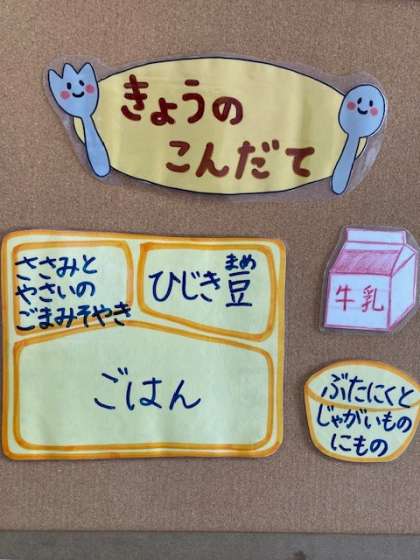 きょうの
こんだて
ささみと
やさいの
ごまみそやき
ひじき豆
まめ
牛乳
ごはん
ぶたにくと
じゃがいもの
にもの